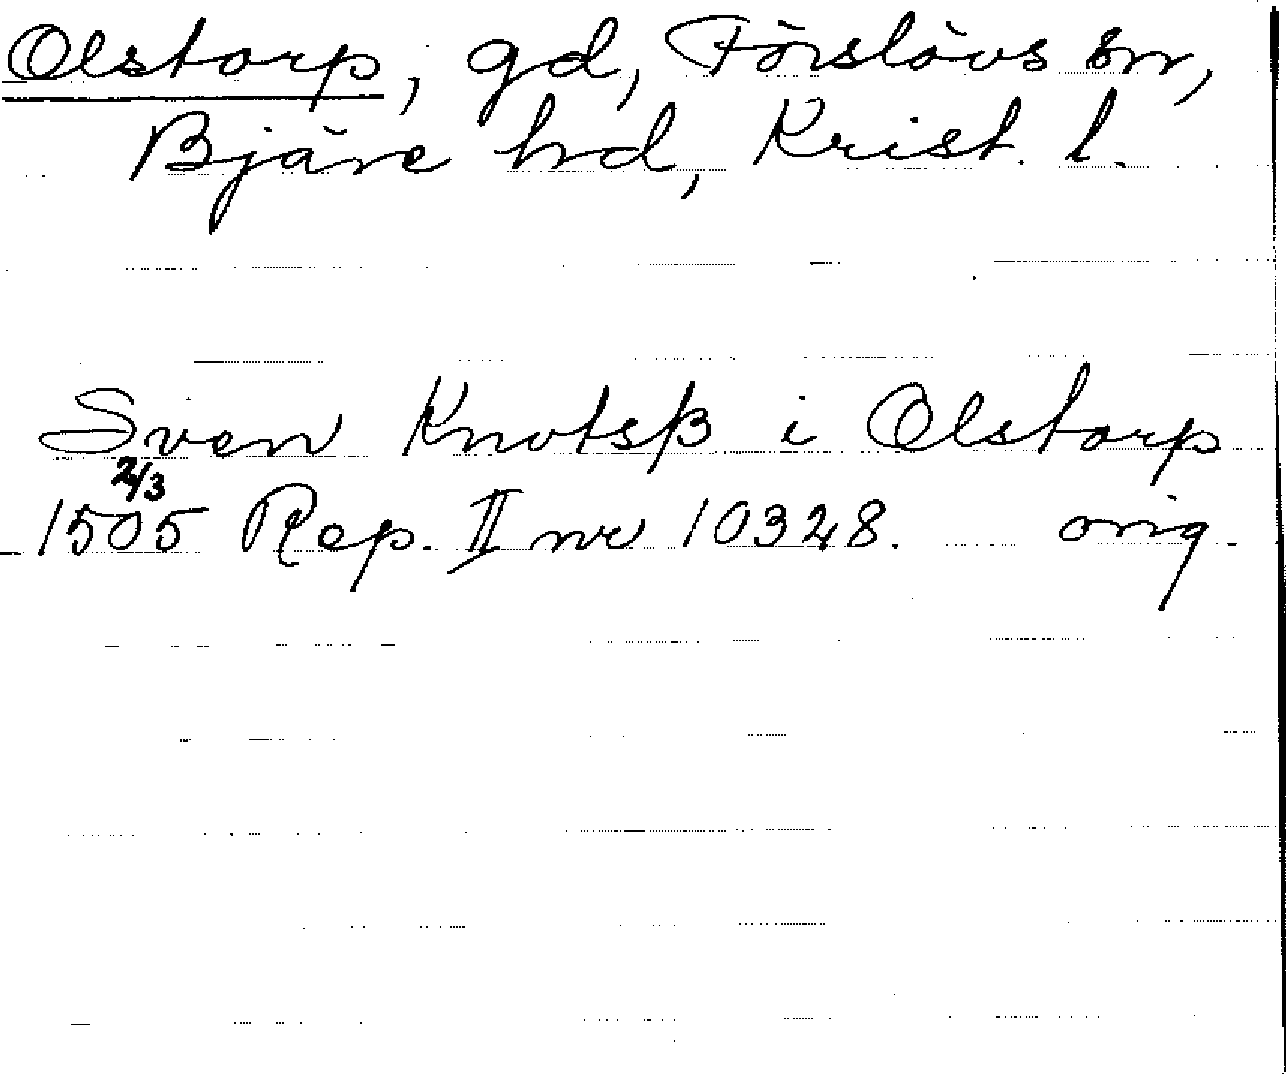 Olstorp, gd, Förslövs sn,
Bjäre hd, Krist. l.
Sven Knotsß i Olstorp
2/3
1505 Rep. II nr 10328. orig.